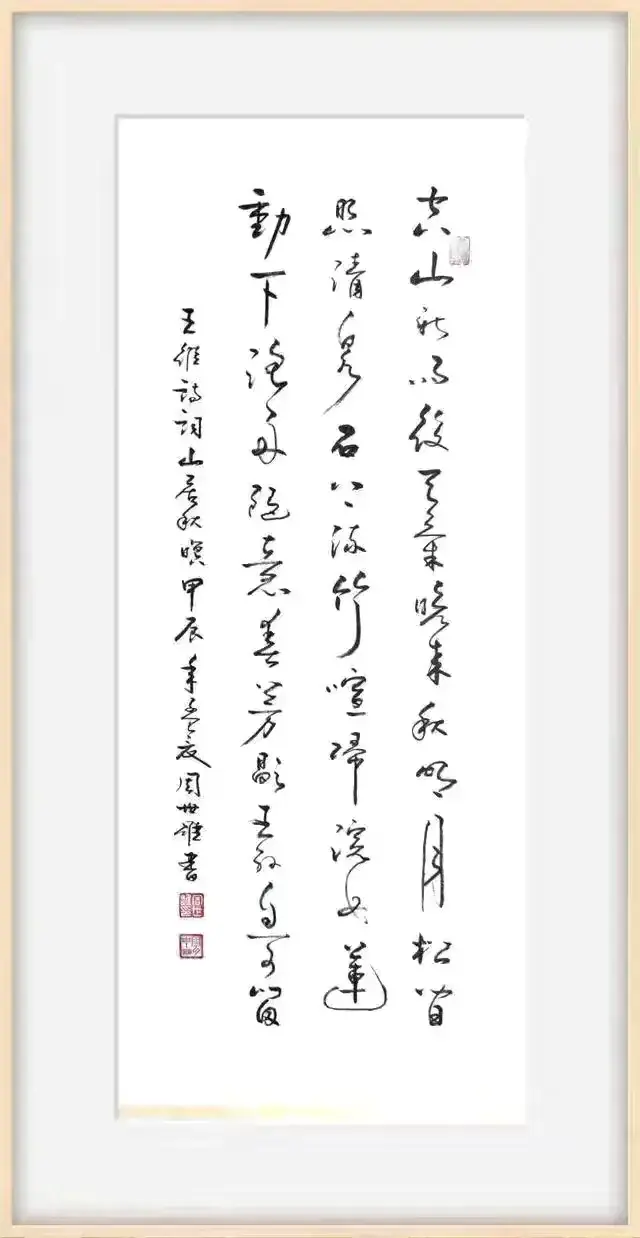 空山新雨後天氣晚來秋明月松間
照清泉石上流竹喧歸浣女蓮
動下漁舟隨意春芳歇王孫自可留
王維詩詞山居秋暝甲辰年孟夏周世雄書